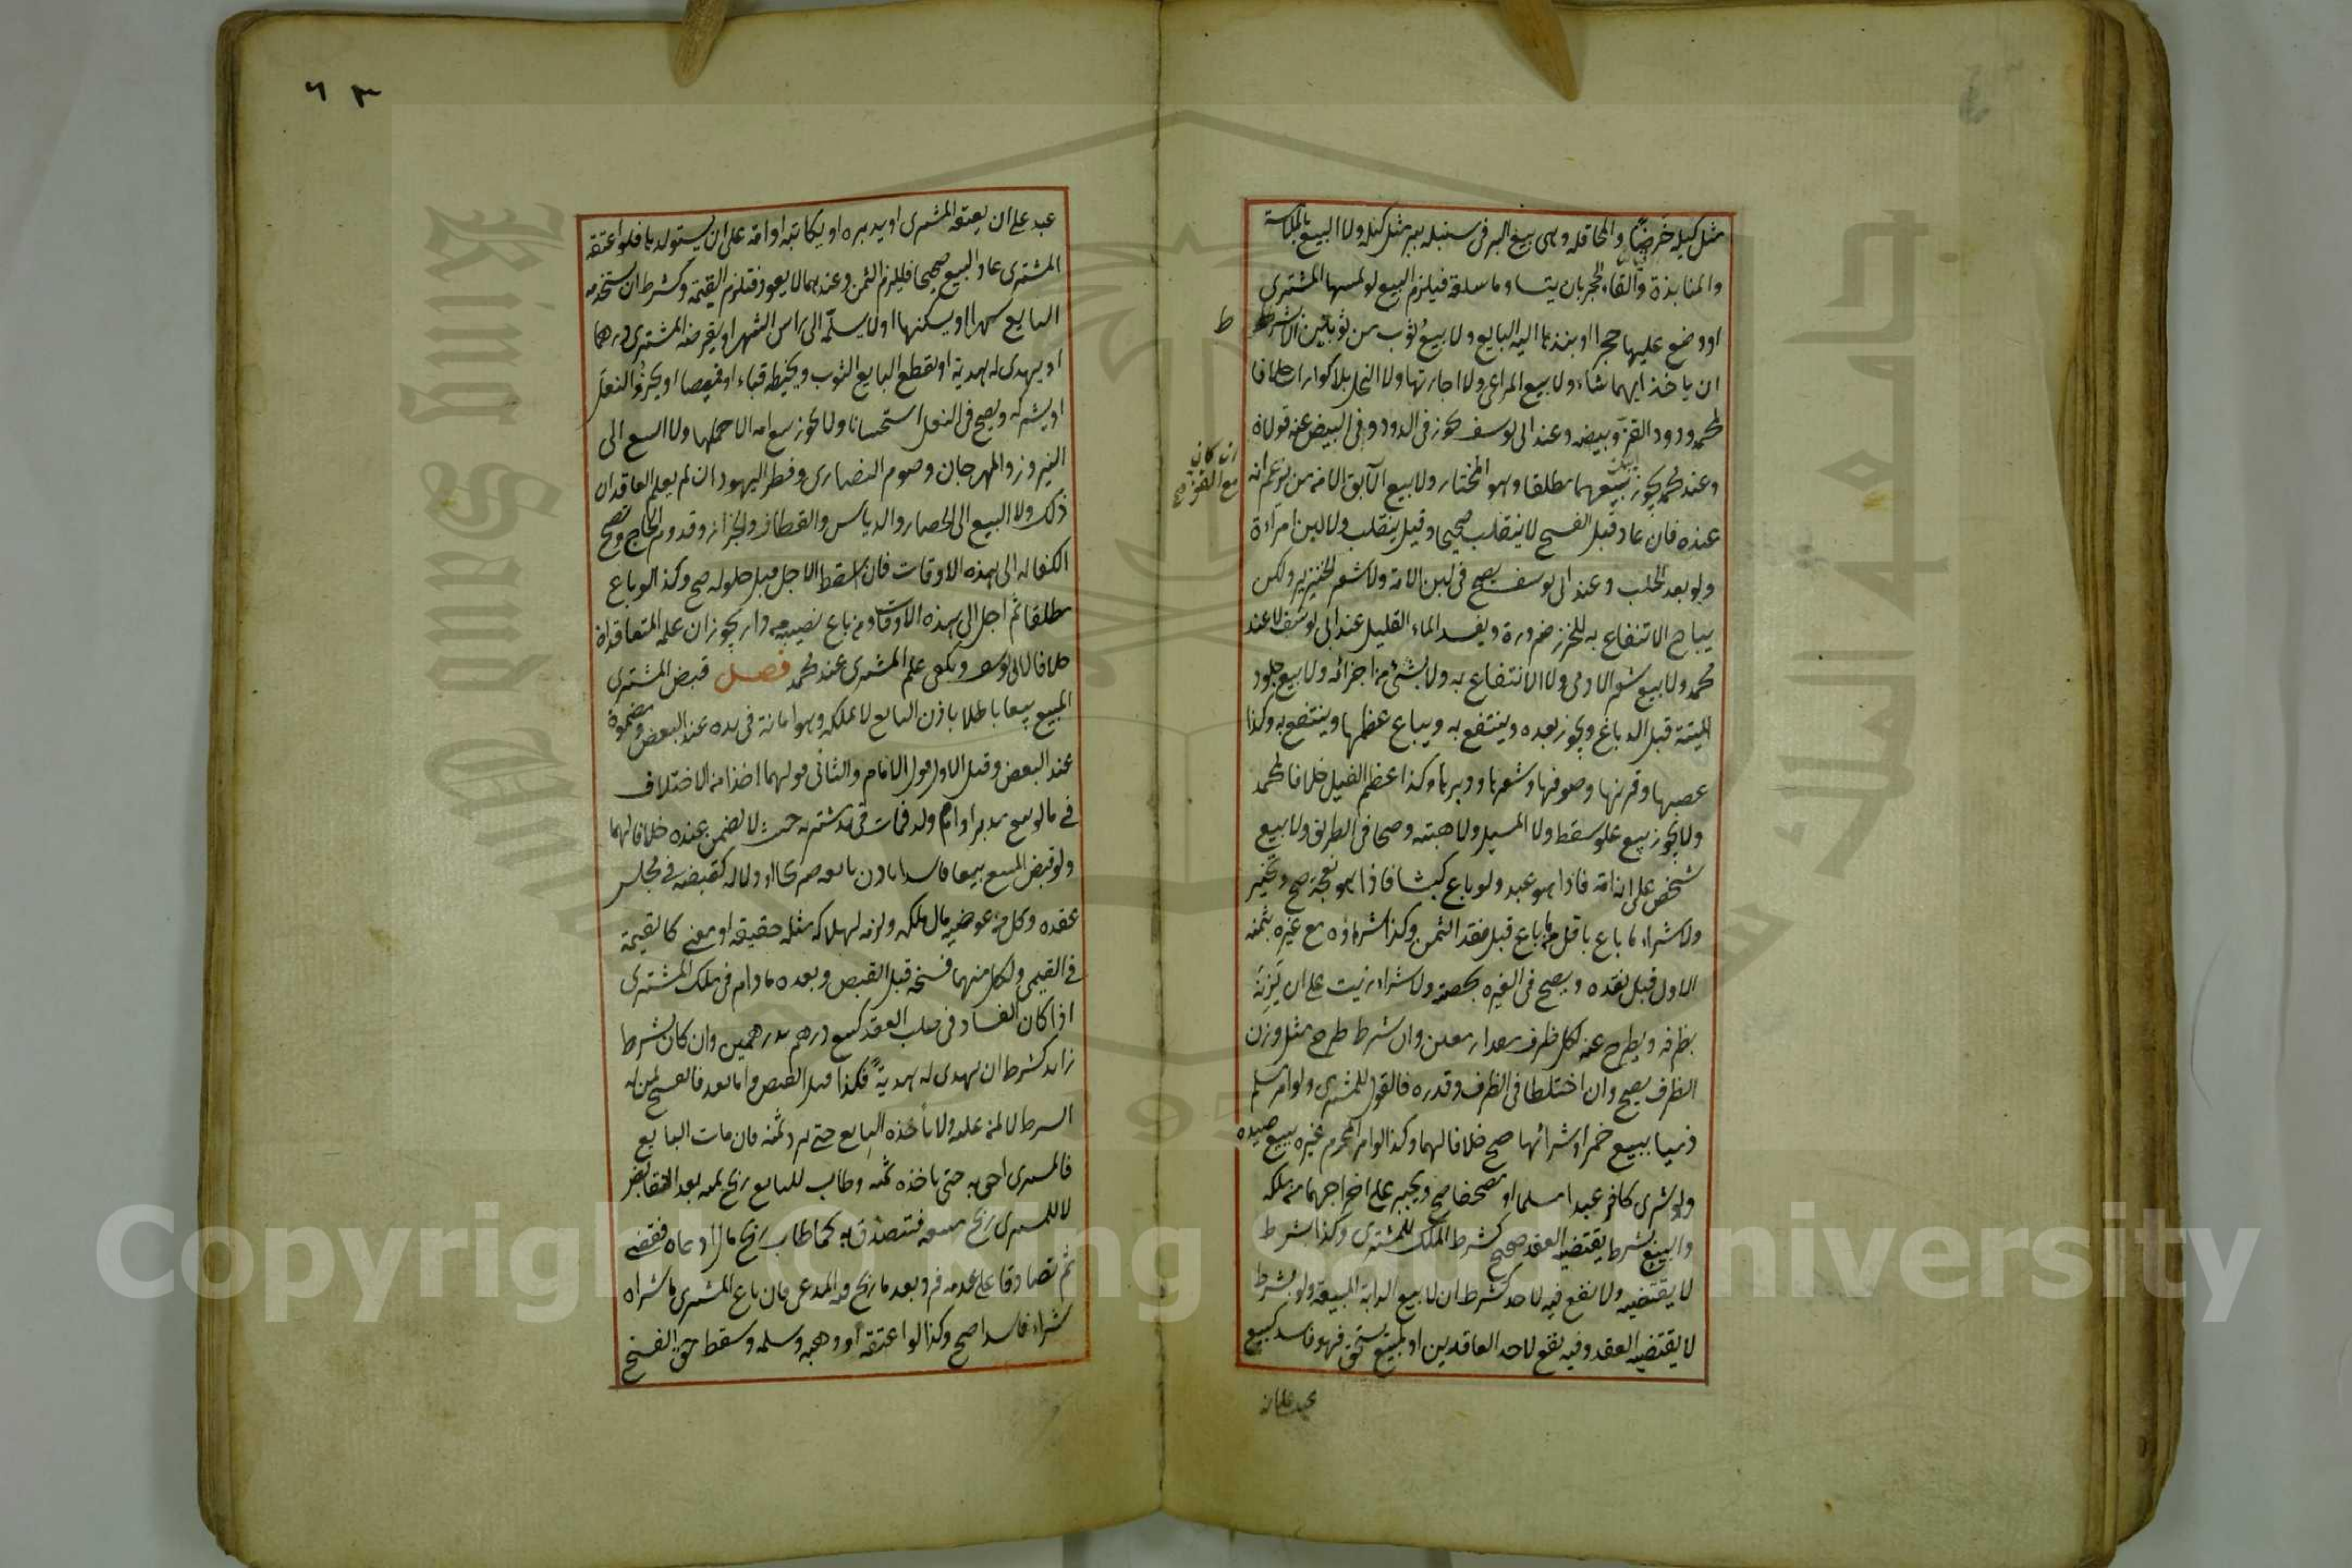 مثل كيله خرصا والمحاقلة وهى بيع البر فى سنبله ببر مثل كيله ولا البيع بالملامسة
والمنابذة والقاء الحجر بان يتساوما سلعة فيلزم البيع لو لمسها المشترى
او وضع عليها حجرا او نبذها اليه البايع ولا بيع ثوب من ثوبين الا بشرط
ان ياخذ ايهما شاء ولا بيع المراعى ولا اجارتها ولا النحل بلا كوارات خلافا
لمحمد ودود القز وبيضه وعند ابى يوسف يجوز فى الدود وفى البيض عنه قولان
وعند محمد يجوز بيعهما مطلقا وهو المختار ولا بيع الآبق الا ممن يزعم انه
عنده فان عاد قبل الفسخ لا ينقلب صحيحا وقيل ينقلب ولا لبن امرأة
ولو بعد الحلب وعند ابى يوسف يصح فى لبن الامة ولا شعر الخنزير ولكن
يباح الانتفاع به للخرز ضرورة ويفسد الماء القليل عند ابى يوسف لا عند
محمد ولا بيع شعر الادمى ولا الانتفاع به ولا بشئ من اجزائه ولا بيع جلود
الميتة قبل الدباغ ويجوز بعده وينتفع به ويباع عظمها وينتفع به وكذا
عصبها وقرنها وصوفها وشعرها ووبرها وكذا عظم الفيل خلافا لمحمد
ولا يجوز بيع علو سقط ولا المسيل ولا هبته وصحا فى الطريق ولا بيع
شخص على انه امة فاذا هو عبد ولو باع كبشا فاذا هو نعجة صح وتخير
ولا شراء ما باع باقل مما باع قبل نقد الثمن وكذا شراؤه مع غيره بثمنه
الاول قبل نقده ويصح فى الغيره بحصته ولا شراء زيت على ان يزنه
بظرفه ويطرح عنه لكل ظرف مقدار معين وان شرط طرح مثل وزن
الظرف يصح وان اختلطا فى الظرف وقدره فالقول للمشترى ولو امر مسلم
ذميا ببيع خمر او شرائها صح خلافا لهما وكذا لو امر المحرم غيره ببيع صيده
ولو شرى كافر عبدا مسلما او مصحفا صح ويجبر على اخراجهما من ملكه
والبيع بشرط يقتضيه العقد صحيح كشرط الملك للمشترى وكذا بشرط
لا يقتضيه ولا نفع فيه لاحد كشرط ان لا يبيع الدابة المبيعة ولو بشرط
لا يقتضيه العقد وفيه نفع لاحد العاقدين او لمبيع يستحق فهو فاسد كبيع
ط
ان كان
مع القز صح
عبد على ان
٦٣
عبد على ان يعتقه المشترى او يدبره او يكاتبه او امة على ان يستولدها فلو اعتقه
المشترى عاد البيع صحيحا فيلزم الثمن وعندهما لا يعود فتلزم القيمة وكشرط ان يستخدمه
البايع شهرا او يسكنها او لا يسلمه الى راس الشهر او يقرضه المشترى درهما
او يهدى له هدية او يقطع البايع الثوب ويخيطه قباء او قميصا او يحذو النعل
او يشركه ويصح فى النعل استحسانا ولا يجوز بيع امة الا حملها ولا البيع الى
النيروز والمهرجان وصوم النصارى وفطر اليهود ان لم يعلم العاقدان
ذلك ولا البيع الى الحصار والدياس والقطاف والجزاز وقدوم الحاج وتصح
الكفالة الى هذه الاوقات فان اسقط الاجل قبل حلوله صح وكذا لو باع
مطلقا ثم اجل الى هذه الاوقات ومن باع نصيبه من دار يجوز ان علمه المتعاقدان
خلافا لابى يوسف ويكفى علم المشترى عند محمد فصل قبض المشترى
المبيع بيعا باطلا باذن البايع لا يملكه وهو امانة فى يده عند البعض ومضمون
عند البعض وقيل الاول قول الامام والثانى قولهما اخذا من الاختلاف
فى ما لو بيع مدبر او ام ولد فمات فى يد مشتريه حيث لا يضمن عنده خلافا لهما
ولو قبض المبيع بيعا فاسدا باذن بايعه صريحا او دلالة كقبضه فى مجلس
عقده وكل من عوضيه مال ملكه ولزمه لهلاكه مثله حقيقة او معنى كالقيمة
فى القيمى ولكل منهما فسخه قبل القبض وبعده ما دام فى ملك المشترى
اذا كان الفساد فى صلب العقد كبيع درهم بدرهمين وان كان بشرط
زايد كشرط ان يهدى له هدية فكذا قبل القبض واما بعده فالفسخ لمن له
الشرط لا لمن عليه ولا يأخذه البايع حتى يرد ثمنه فان مات البايع
فالمشترى احق به حتى ياخذه ثمنه وطاب للبايع ربح ثمنه بعد التقابض
لا للمشترى ربح مبيعه فتصدق به كما طاب ربح مال ادعاه فقضى
ثم تصادقا على عدمه فرد بعد ما ربح فيه المدعى فان باع المشترى ما شراه
شراء فاسدا صح وكذا لو اعتقه او وهبه وسلمه وسقط حق الفسخ